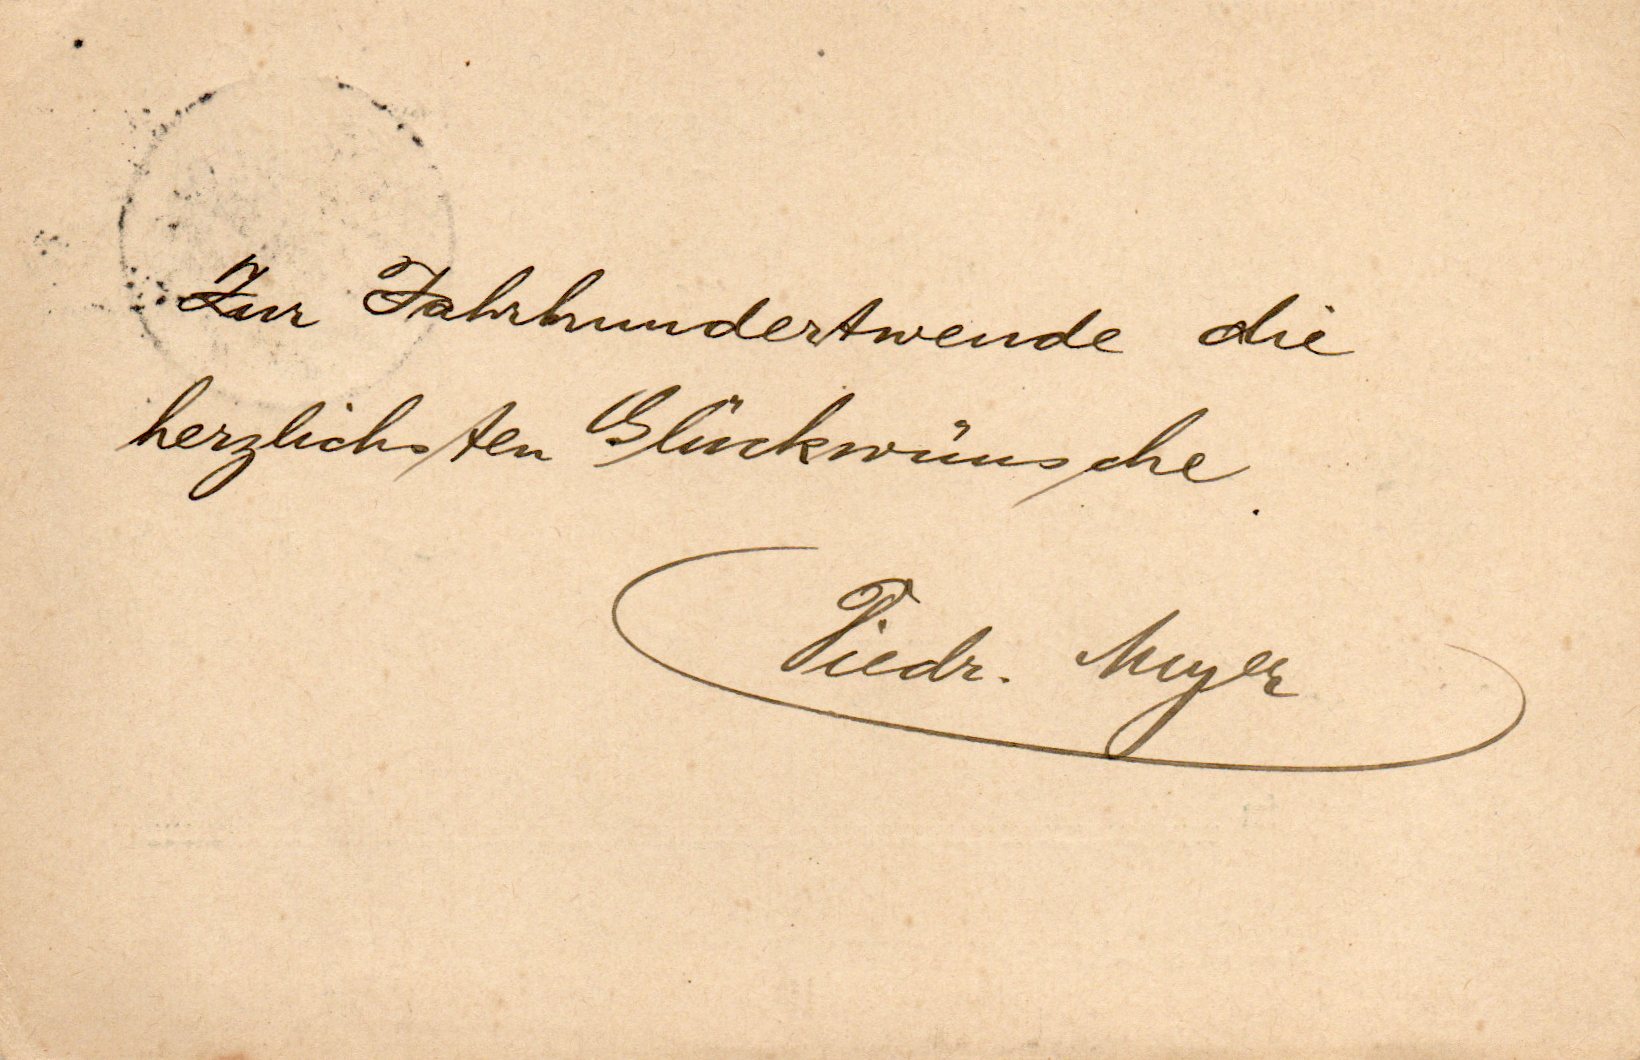 Zur Jahrhundertwende die
herzlichsten Glückwünsche.
Friedr. Meyer